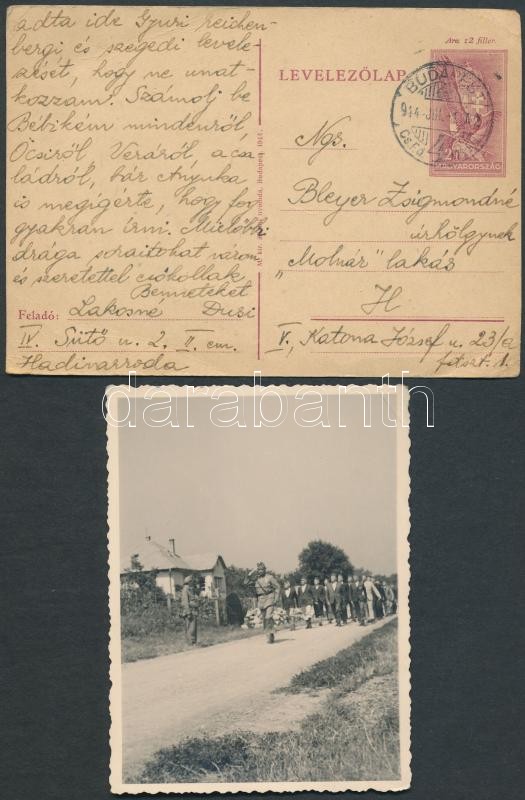 adta ide Gyuri reichen-
bergi és szegedi levele-
zését, hogy ne unat-
kozzam. Számolj be
Bébikém mindenről,
Öcsiről, Veráról, a csa-
ládról, bár Anyuka
is megigérte, hogy fog
gyakran írni. Mielőbbi
drága soraitokat várom
és szeretettel csókollak
Benneteket
Feladó: Lakosné Dusi
IV. Sütő u. 2. II. em.
Hadinarroda
Ára 12 fillér.
LEVELEZŐLAP
BUDAPEST
MAGYARORSZÁG
Ngs.
Bleyer Zsigmondné
úrhölgynek
"Molnár" lakás
H
V. Katona József u. 23/a
fszt. 1.
darabanth